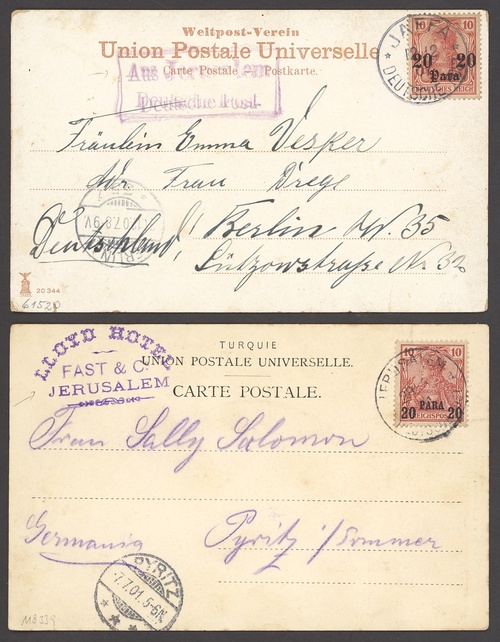 Weltpost-Verein
Union Postale Universelle
Carte Postale – Postkarte.
Aus Jerusalem
Deutsche Post.
JAFFA
DEUTSCHE
10 10
20 20
Para
DEUTSCHES REICH
Fräulein Emma Vesker
adr. Frau Drege
Deutschland! Berlin W. 35
Lützowstraße Nr 32
BERLIN
07.8-9V.
20 344
61520
LLOYD HOTEL
FAST & C.
JERUSALEM
TURQUIE
UNION POSTALE UNIVERSELLE.
CARTE POSTALE.
JERUSALEM
10 10
20 PARA 20
REICHSPOST
Frau Sally Salomon
Germania Pyritz i/Pommer
PYRITZ
7.7.01.5-6N.